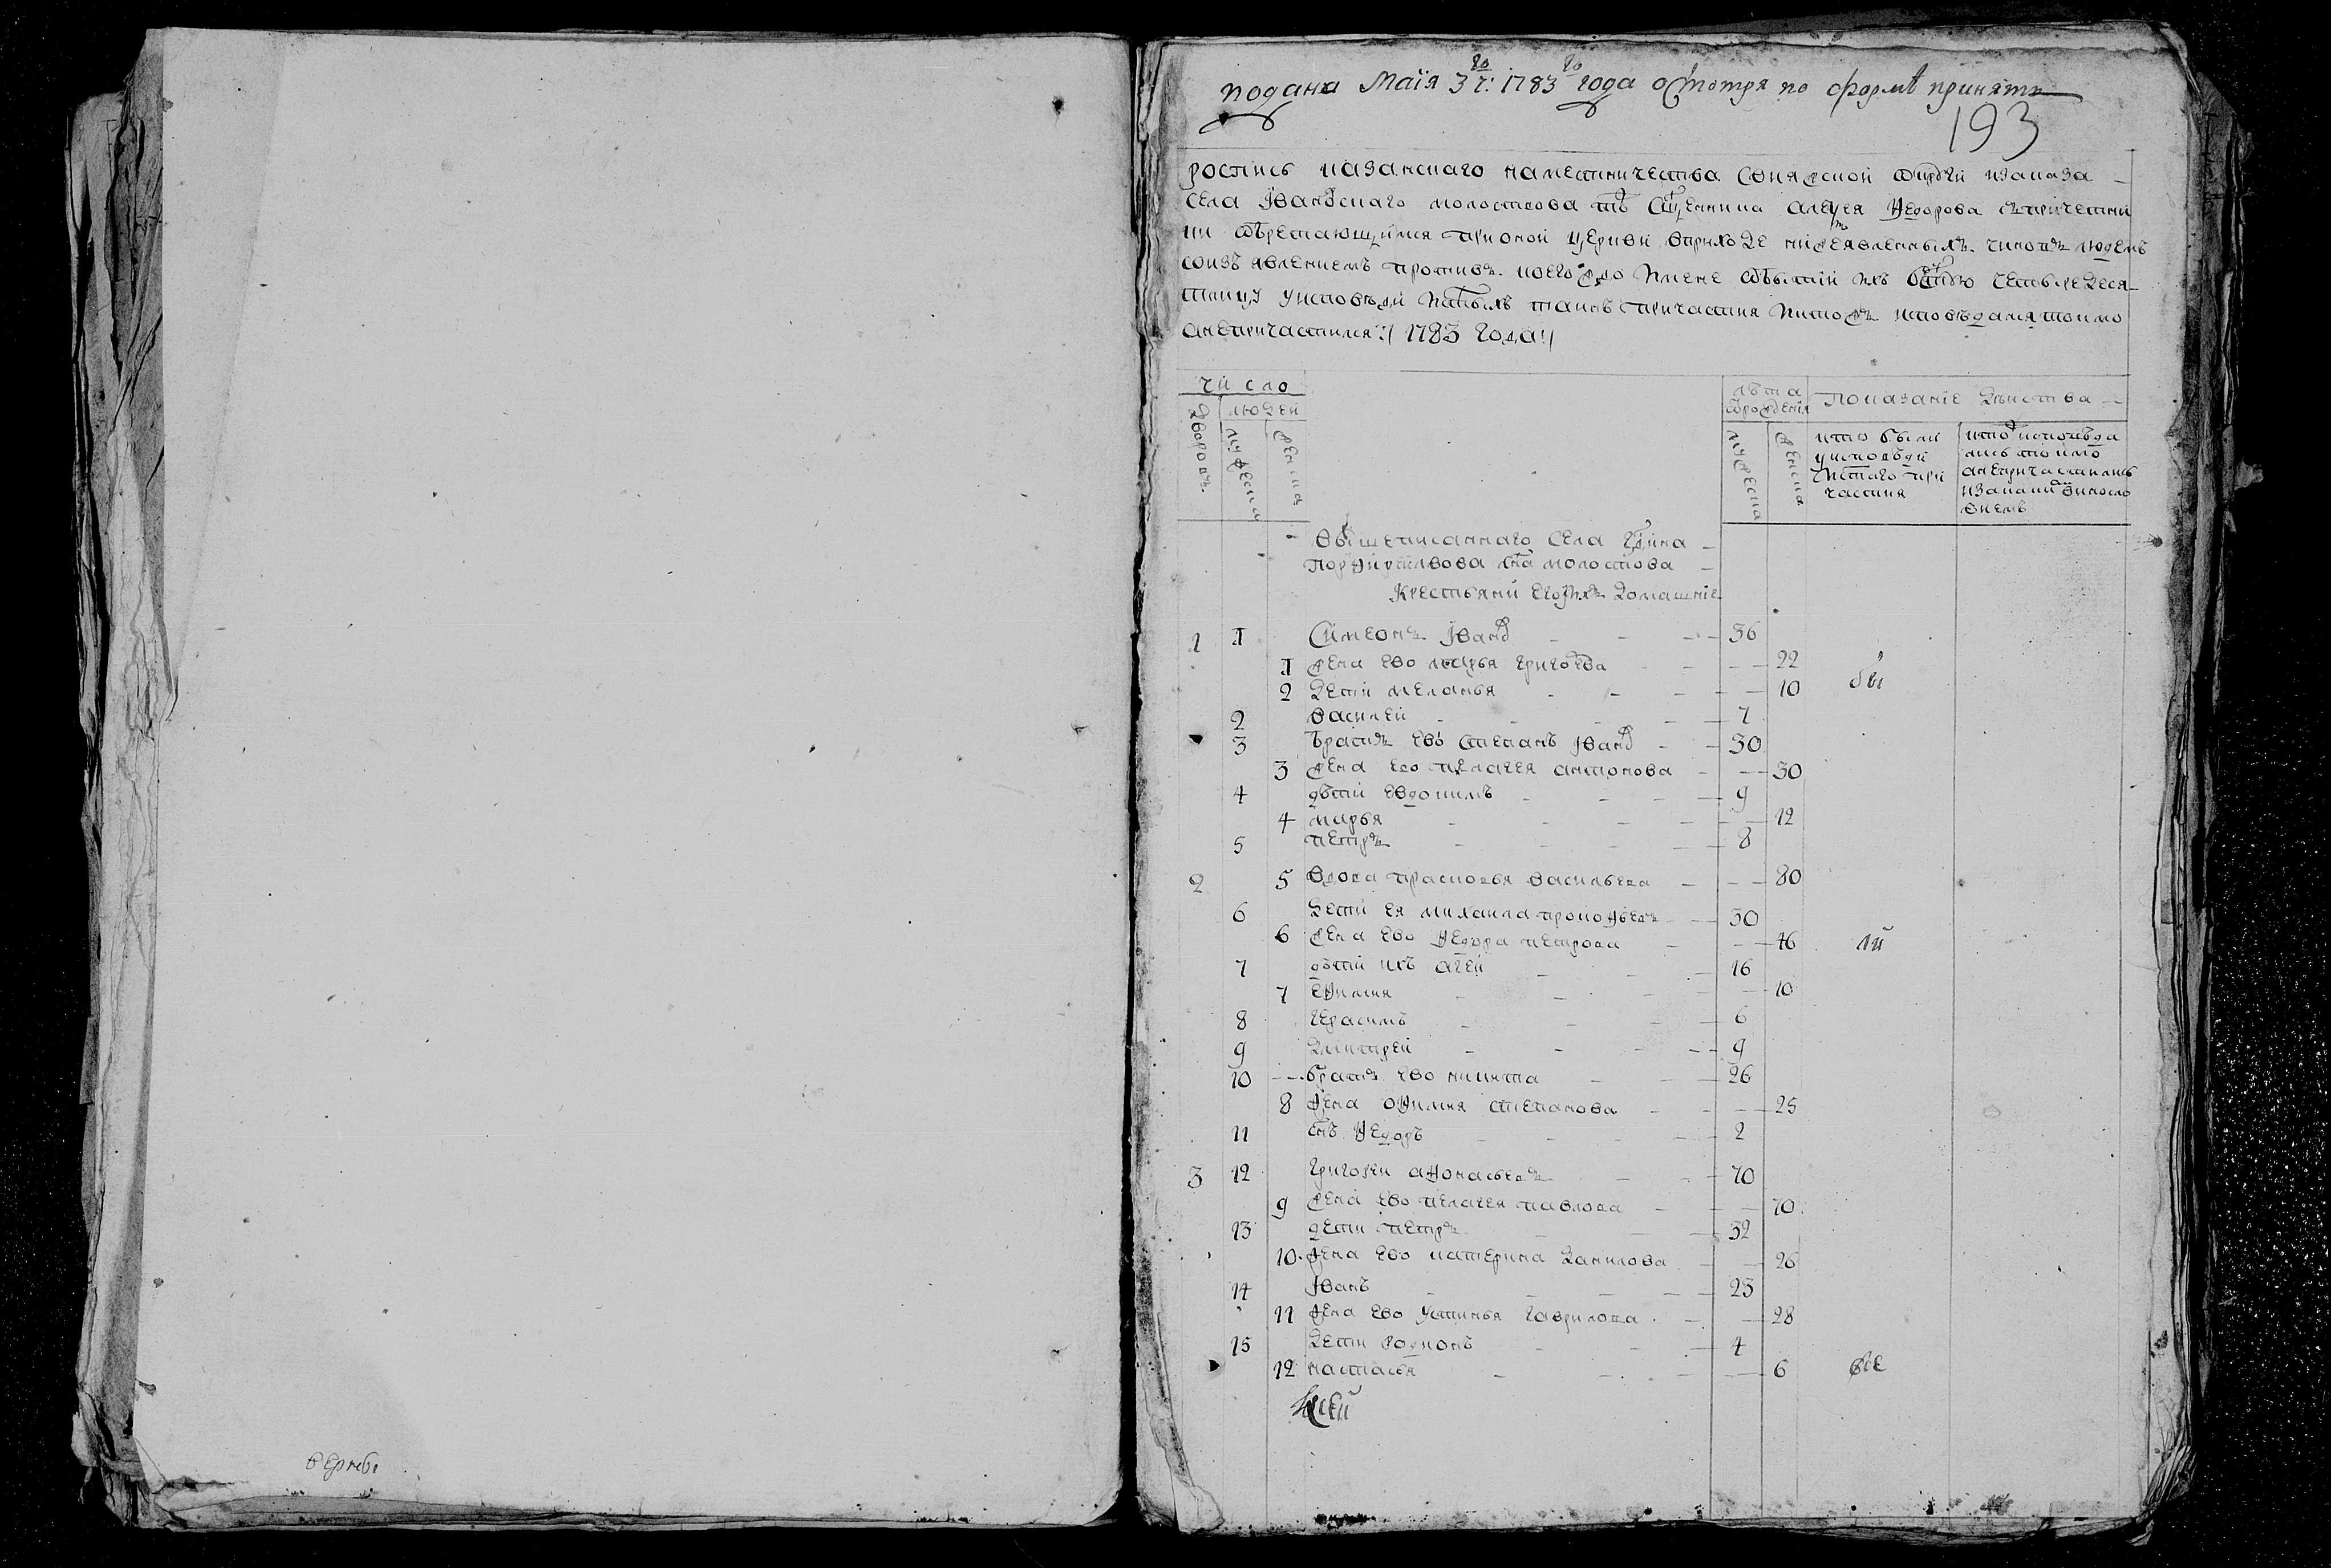 подана Маія 3г ч: 1783го года осмотря по формѣ принять
193
роспись казанскаго наместничества свияжской округи изаказа
села Ивановскаго молостова тъ священника алеѯея Ѳедорова спричетни
ки обретающимся прионой церкви вприходе нижеявленныхъ чиновъ людемъ
соизъявлениемъ противъ коегождо имене
тницу уисповѣди истыхъ таинъ причастия иктожъ исповѣдался токмо
анепричастился :/ 1783 года :/
число
дворовъ
людей
мужеска
женска
лѣта отрождения
мужеска
женска
показание действа
кто были
уисповѣди
истаго при
частия
кто исповѣда
лись токмо
анепричастились
изакаким
онемъ
вышеписаннаго села
молостова
крестьяни его домашние
1 1 Симеонъ Иванов 36
1 жена ево марья григорева 22
2 дети меланья 10
бы
2 василей 7
3 братъ ево степанъ Иванов 30
3 жена ево пелагея антонова 30
4 дѣти евдокимъ 9
4 марья 12
5 петръ 8
2 5 вдова прасковья васильева 80
6 дети ея михаила прокоѳьевъ 50
6 жена ево Ѳедора петрова 46
ли
7 дѣти ихъ агей 16
7 еѳимия 10
8 герасимъ 6
9 дмитрей 9
10 братъ ево никита 26
8 жена оѳимия степанова 25
11 снъ Ѳедоръ 2
3 12 григорей аѳонасьевъ 70
9 жена ево пелагея павлова 70
13 дети петръ 32
10 жена ево катерина данилова 26
14 Иванъ 23
11 жена ево устинья гаврилова 28
15 дети родионъ 4
12 настасья 6
все